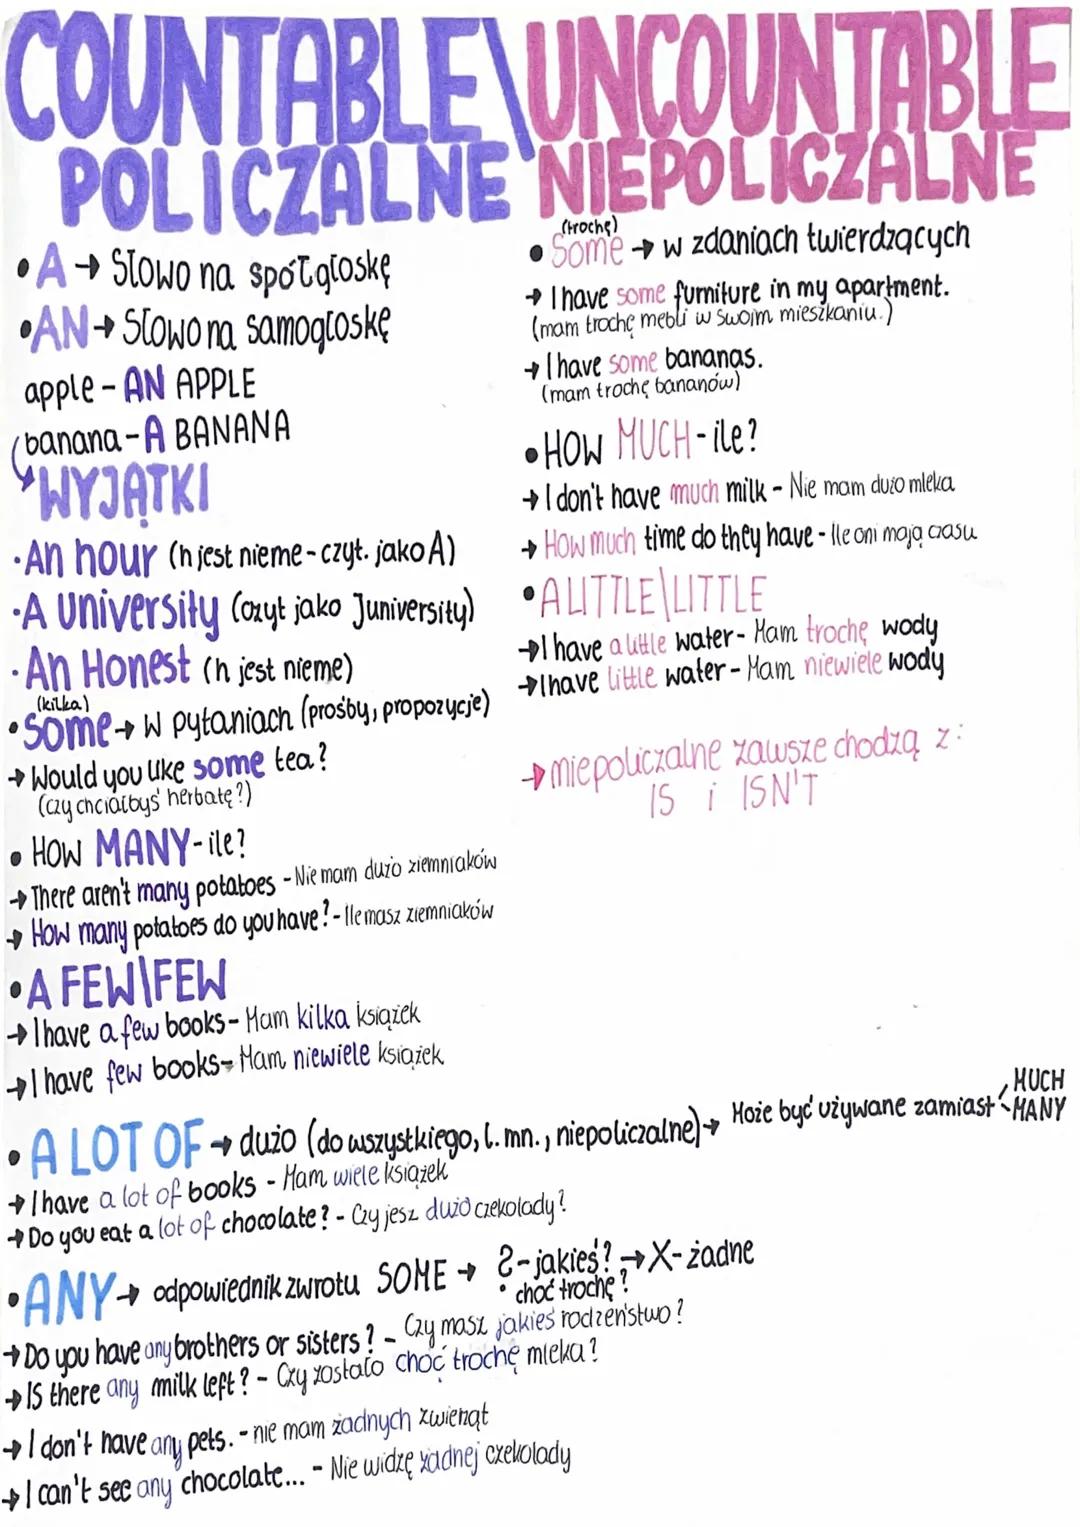 COUNTABLE\UNCOUNTABLE
POLICZALNE NIEPOLICZALNE
• A → Słowo na spółgłoskę
• AN → Słowo na samogłoskę
apple - AN APPLE
banana - A BANANA
WYJĄTKI
· An hour (h jest nieme - czyt. jako A)
· A University (czyt jako Juniversity)
· An Honest (h jest nieme)
(kilka)
• Some → W pytaniach (prośby, propozycje)
→ Would you like some tea?
(czy chciałbyś herbatę?)
• HOW MANY - ile?
→ There aren't many potatoes - Nie mam dużo ziemniaków
→ How many potatoes do you have? - Ile masz ziemniaków
• A FEW\FEW
→ I have a few books - Mam kilka książek
→ I have few books - Mam niewiele książek
(trochę)
• Some → w zdaniach twierdzących
→ I have some furniture in my apartment.
(mam trochę mebli w swoim mieszkaniu.)
→ I have some bananas.
(mam trochę bananów)
• HOW MUCH - ile?
→ I don't have much milk - Nie mam dużo mleka
→ How much time do they have - Ile oni mają czasu
• A LITTLE\LITTLE
→ I have a little water - Mam trochę wody
→ I have little water - Mam niewiele wody
→ niepoliczalne zawsze chodzą z:
IS i ISN'T
• A LOT OF → dużo (do wszystkiego, l. mn., niepoliczalne) → Może być używane zamiast MUCH
MANY
→ I have a lot of books - Mam wiele książek
→ Do you eat a lot of chocolate? - Czy jesz dużo czekolady?
• ANY → odpowiednik zwrotu SOME → ? - jakieś? → X - żadne
• choć trochę?
→ Do you have any brothers or sisters? - Czy masz jakieś rodzeństwo?
→ IS there any milk left? - Czy zostało choć trochę mleka?
→ I don't have any pets. - nie mam żadnych zwierząt
→ I can't see any chocolate... - Nie widzę żadnej czekolady